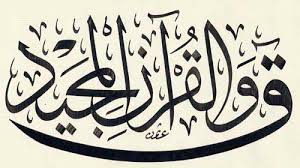 ق والقرآن المجيد